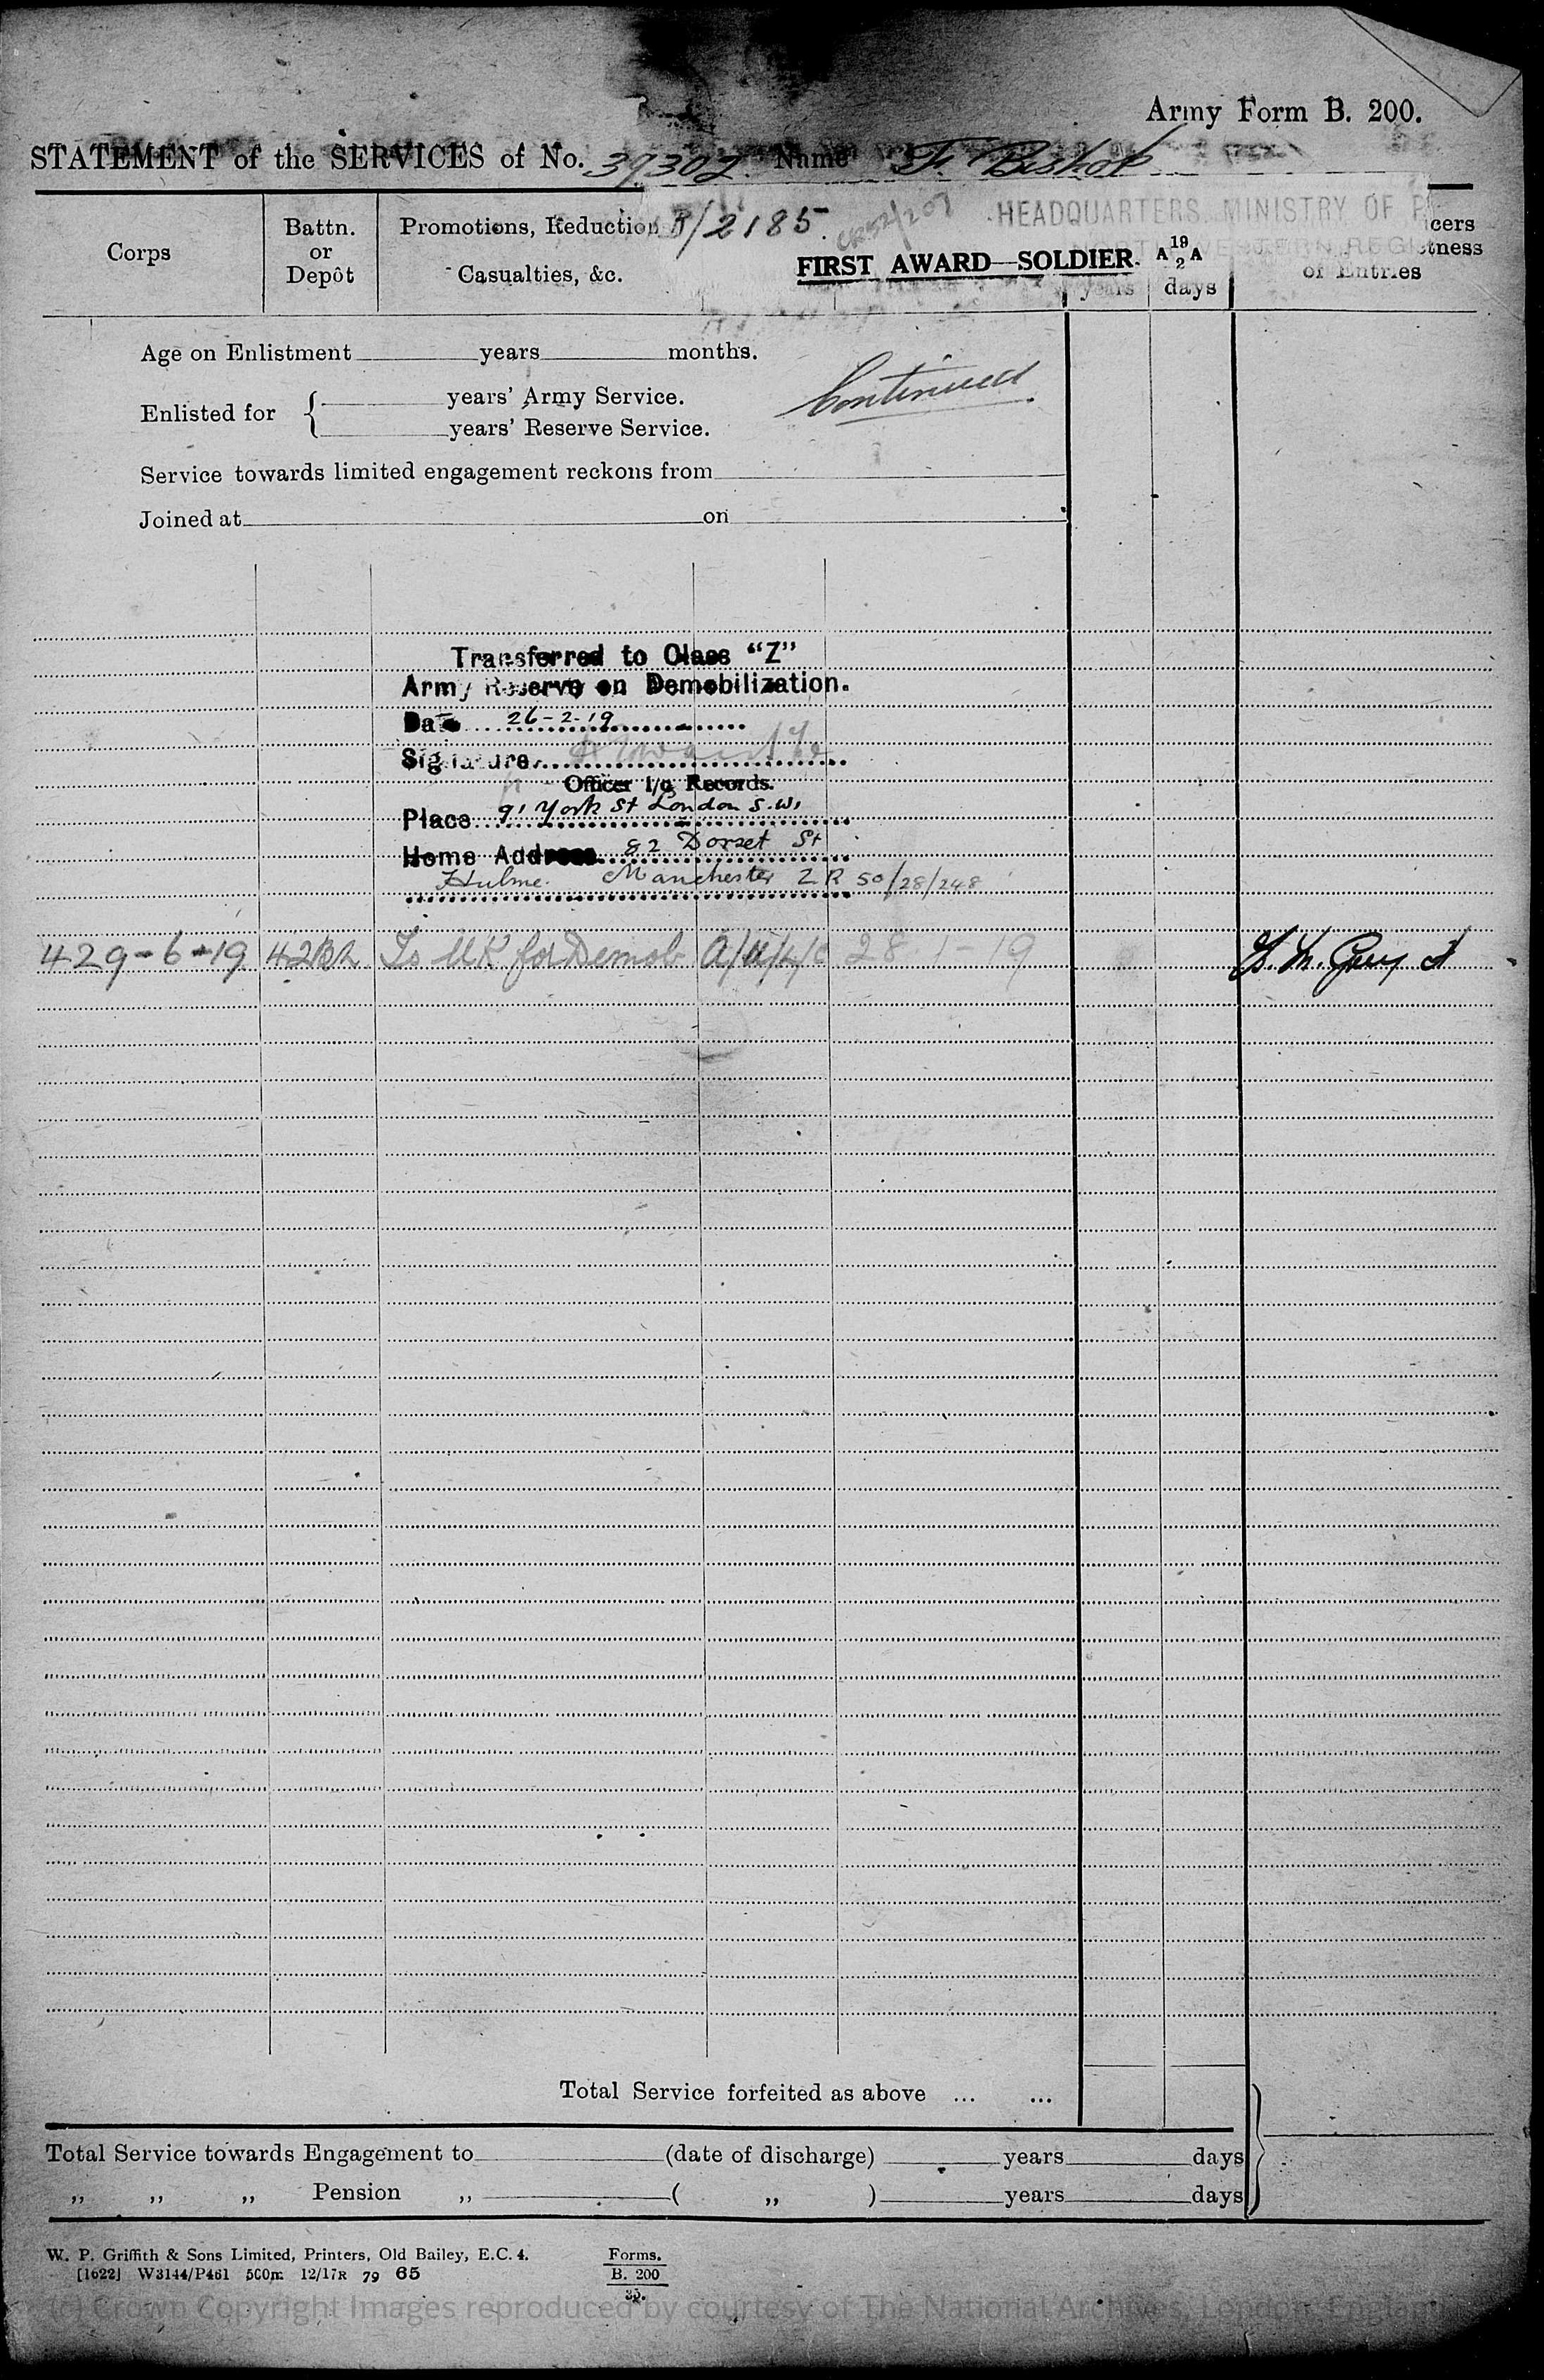 Army Form B. 200.
STATEMENT of the SERVICES of No. 39302 Name F. Bishop
Corps
Battn. or Depôt
Promotions, Reduction
Casualties, &c.
R/2185.
CR52/207
HEADQUARTERS MINISTRY OF P
NORTH WESTERN REGI
FIRST AWARD—SOLDIER.
A 19/2 A
years
days
cers
tness
of Entries
Age on Enlistment years months.
Continued
Enlisted for { years' Army Service.
years' Reserve Service.
Service towards limited engagement reckons from
Joined at on
Transferred to Class "Z"
Army Reserve on Demobilization.
Date 26-2-19
Signature
Officer i/c Records.
Place 91 York St London S.W.
Home Address 82 Dorset St
Hulme. Manchester ZR 50/28/248
429-6-19 42Bn To UK for Demob 28-1-19
Total Service forfeited as above ... ...
Total Service towards Engagement to (date of discharge) years days
„ „ „ Pension „ ( „ ) years days
W. P. Griffith & Sons Limited, Printers, Old Bailey, E.C. 4.
[1622] W3144/P461 500m 12/17R 79 65
Forms.
B. 200
35.
(c) Crown Copyright Images reproduced by courtesy of The National Archives, London, England